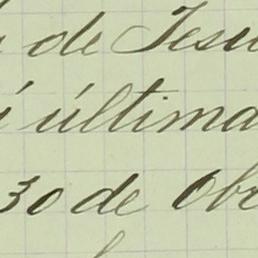 de Jesu
última
30 de Obr